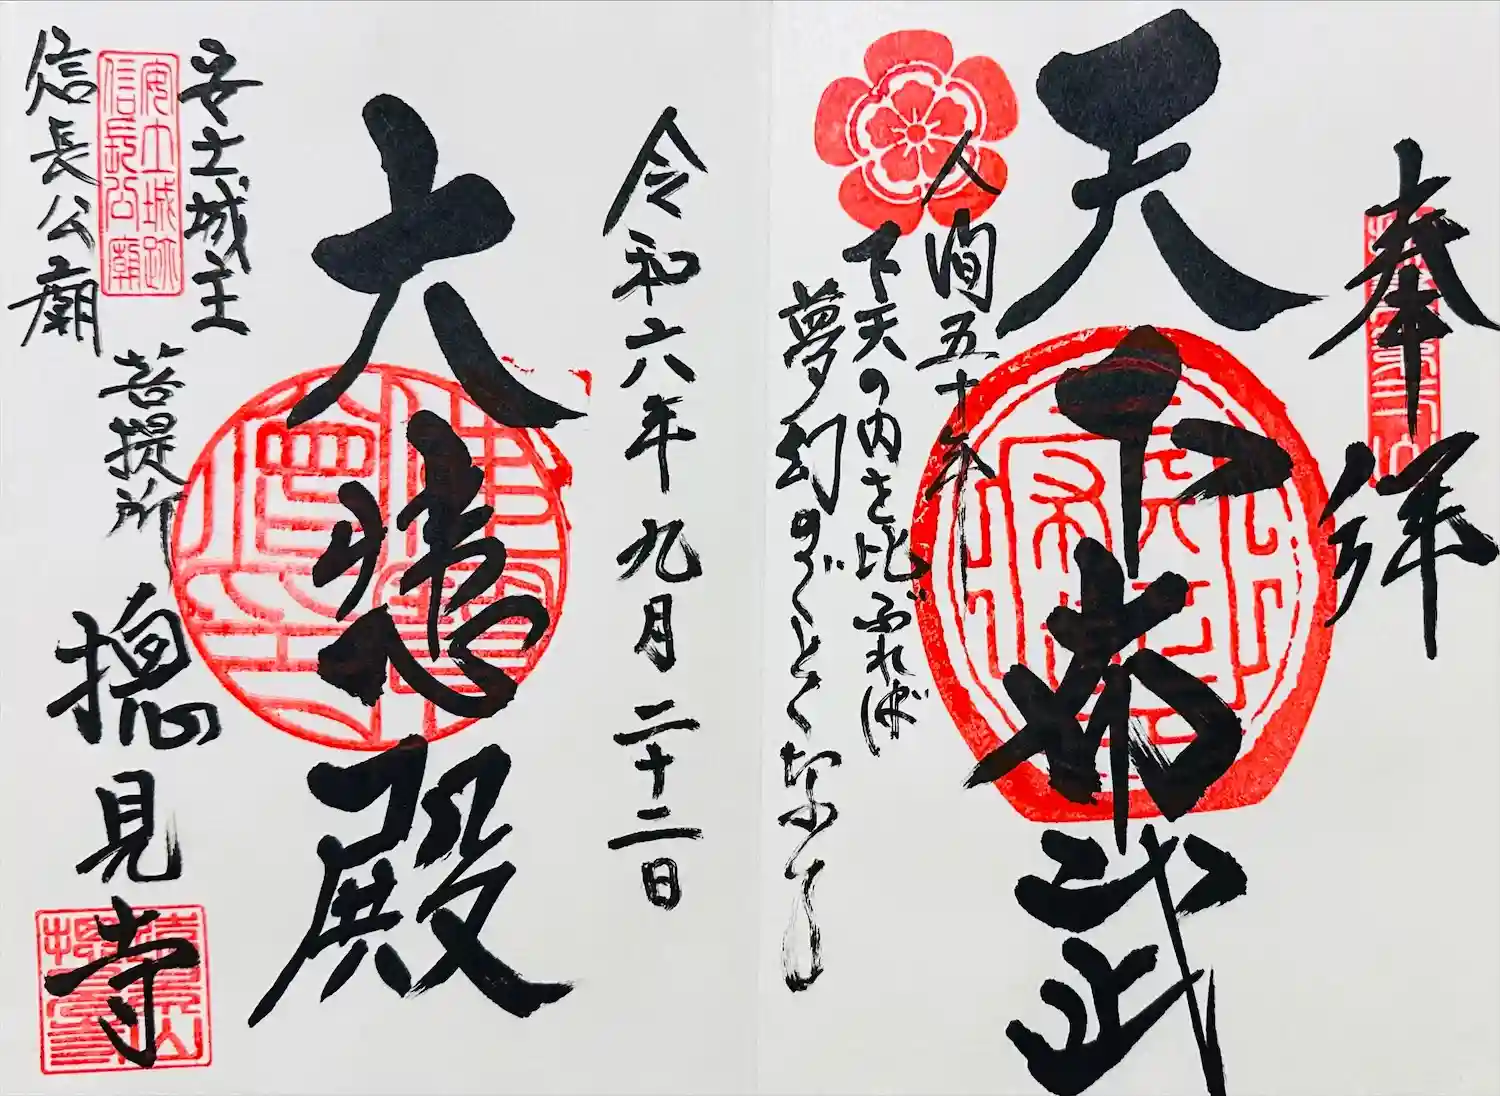 奉拝
天下布武
人間五十年
下天の内を比ぶれば
夢幻のごとくなり
令和六年九月二十二日
大悲殿
安土城主
安土城跡
信長公廟
信長公廟
菩提所
摠見寺